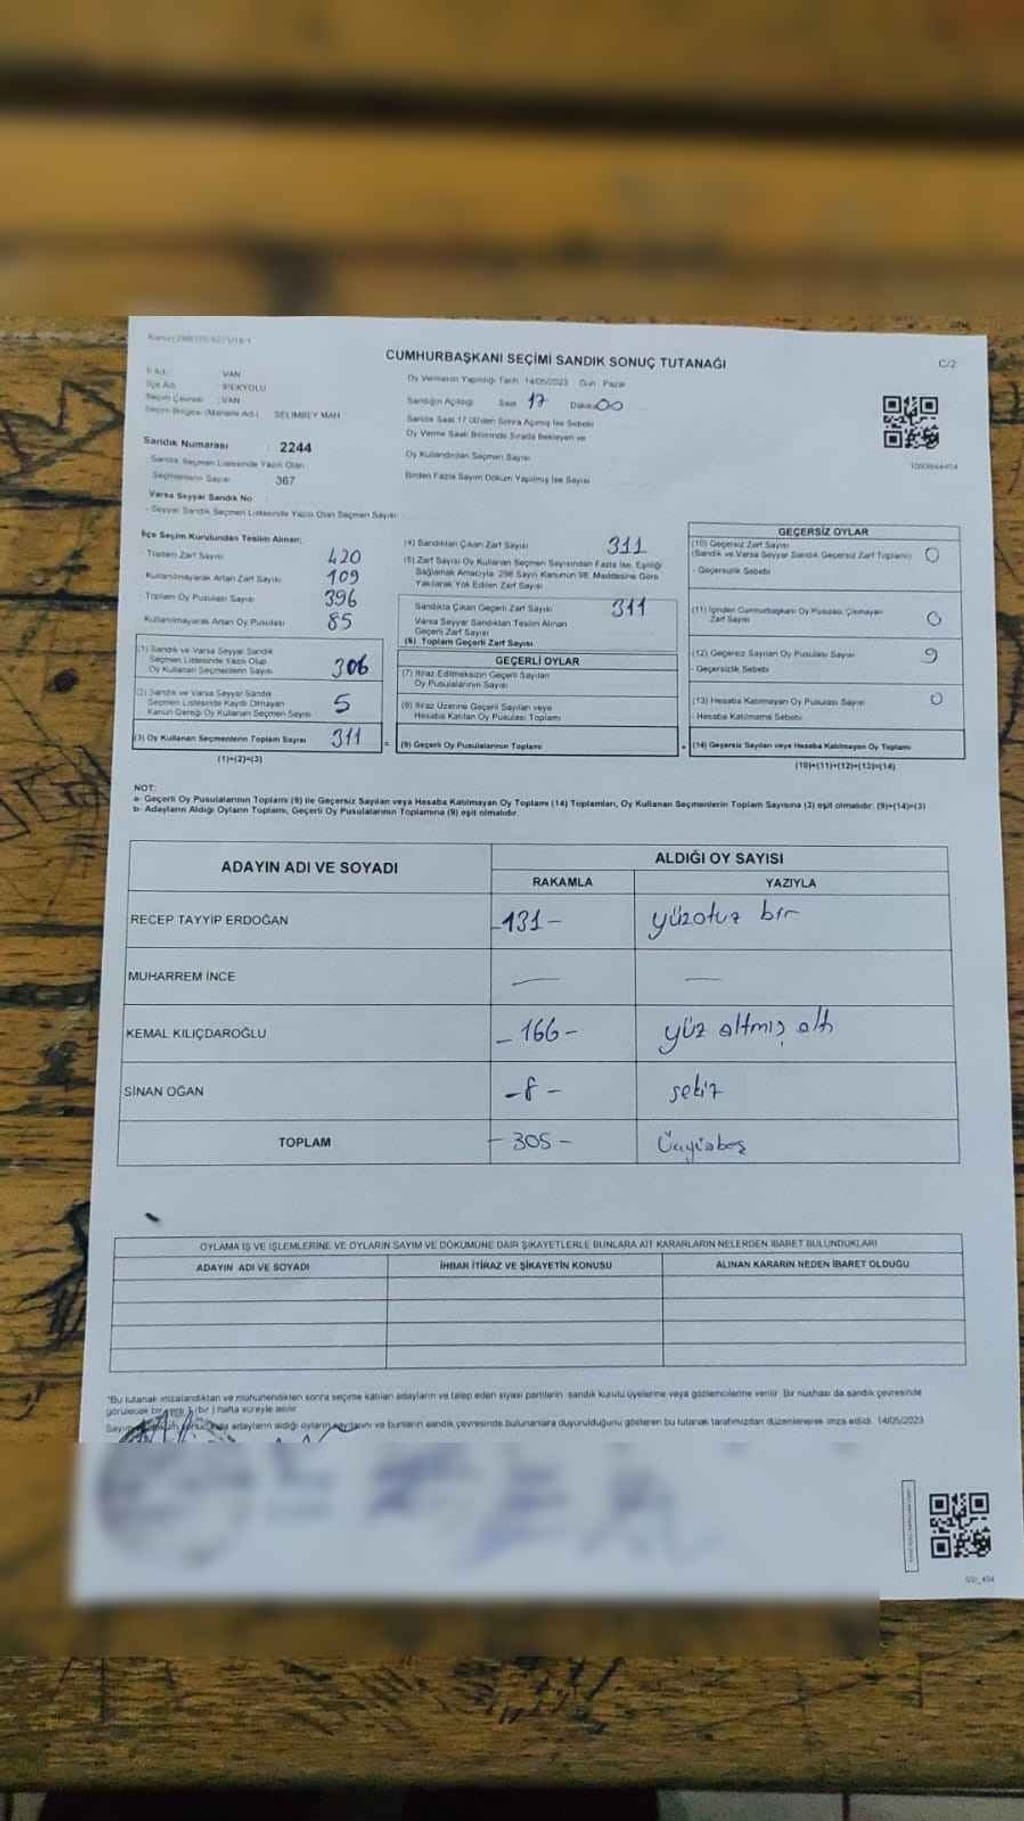 CUMHURBAŞKANI SEÇİMİ SANDIK SONUÇ TUTANAĞI
C/2
İl Adı : VAN
İlçe Adı : İPEKYOLU
Seçim Çevresi : VAN
Seçim Bölgesi (Mahalle Adı) : SELİMBEY MAH
Sandık Numarası : 2244
Sandık Seçmen Listesinde Yazılı Olan
Seçmenlerin Sayısı : 367
Varsa Seyyar Sandık No :
- Seyyar Sandık Seçmen Listesinde Yazılı Olan Seçmen Sayısı
Oy Vermenin Yapıldığı Tarih : 14/05/2023 Gün : Pazar
Sandığın Açıldığı Saat 17 Dakika 00
Sandık Saat 17.00'den Sonra Açılmış İse Sebebi
Oy Verme Saati Bitiminde Sırada Bekleyen ve
Oy Kullandırılan Seçmen Sayısı
Birden Fazla Sayım Döküm Yapılmış İse Sayısı
İlçe Seçim Kurulundan Teslim Alınan;
- Toplam Zarf Sayısı 420
- Kullanılmayarak Artan Zarf Sayısı 109
- Toplam Oy Pusulası Sayısı 396
- Kullanılmayarak Artan Oy Pusulası 85
(1) Sandık ve Varsa Seyyar Sandık
Seçmen Listesinde Yazılı Olup
Oy Kullanan Seçmenlerin Sayısı 306
(2) Sandık ve Varsa Seyyar Sandık
Seçmen Listesinde Kaydı Olmayan
Kanun Gereği Oy Kullanan Seçmen Sayısı 5
(3) Oy Kullanan Seçmenlerin Toplam Sayısı 311 =
(1)+(2)=(3)
(4) Sandıktan Çıkan Zarf Sayısı 311
(5) Zarf Sayısı Oy Kullanan Seçmen Sayısından Fazla İse, Eşitliği
Sağlamak Amacıyla, 298 Sayılı Kanunun 98. Maddesine Göre
Yakılarak Yok Edilen Zarf Sayısı
Sandıkta Çıkan Geçerli Zarf Sayısı 311
Varsa Seyyar Sandıktan Teslim Alınan
Geçerli Zarf Sayısı
(6) Toplam Geçerli Zarf Sayısı
GEÇERLİ OYLAR
(7) İtiraz Edilmeksizin Geçerli Sayılan
Oy Pusulalarının Sayısı
(8) İtiraz Üzerine Geçerli Sayılan veya
Hesaba Katılan Oy Pusulası Toplamı
(9) Geçerli Oy Pusulalarının Toplamı +
GEÇERSİZ OYLAR
(10) Geçersiz Zarf Sayısı
(Sandık ve Varsa Seyyar Sandık Geçersiz Zarf Toplamı) 0
- Geçersizlik Sebebi
(11) İçinden Cumhurbaşkanı Oy Pusulası Çıkmayan
Zarf Sayısı 0
(12) Geçersiz Sayılan Oy Pusulası Sayısı 9
- Geçersizlik Sebebi
(13) Hesaba Katılmayan Oy Pusulası Sayısı 0
- Hesaba Katılmama Sebebi
(14) Geçersiz Sayılan veya Hesaba Katılmayan Oy Toplamı
(10)+(11)+(12)+(13)=(14)
NOT:
a- Geçerli Oy Pusulalarının Toplamı (9) ile Geçersiz Sayılan veya Hesaba Katılmayan Oy Toplamı (14) Toplamları, Oy Kullanan Seçmenlerin Toplam Sayısına (3) eşit olmalıdır. (9)+(14)=(3)
b- Adayların Aldığı Oyların Toplamı, Geçerli Oy Pusulalarının Toplamına (9) eşit olmalıdır.
ADAYIN ADI VE SOYADI
ALDIĞI OY SAYISI
RAKAMLA
YAZIYLA
RECEP TAYYİP ERDOĞAN -131- yüzotuz bir
MUHARREM İNCE — —
KEMAL KILIÇDAROĞLU -166- yüz altmış altı
SİNAN OĞAN -8- sekiz
TOPLAM -305- Üçyüzbeş
OYLAMA İŞ VE İŞLEMLERİNE VE OYLARIN SAYIM VE DÖKÜMÜNE DAİR ŞİKAYETLERLE BUNLARA AİT KARARLARIN NELERDEN İBARET BULUNDUKLARI
ADAYIN ADI VE SOYADI
İHBAR İTİRAZ VE ŞİKAYETİN KONUSU
ALINAN KARARIN NEDEN İBARET OLDUĞU
*Bu tutanak imzalandıktan ve mühürlendikten sonra seçime katılan adayların ve talep eden siyasi partilerin, sandık kurulu üyelerine veya gözlemcilerine verilir. Bir nüshası da sandık çevresinde
görülecek bir yere 1 (bir) hafta süreyle asılır.
adayların aldığı oyların sayılarını ve bunların sandık çevresinde bulunanlara duyurulduğunu gösteren bu tutanak tarafımızdan düzenlenerek imza edildi. 14/05/2023